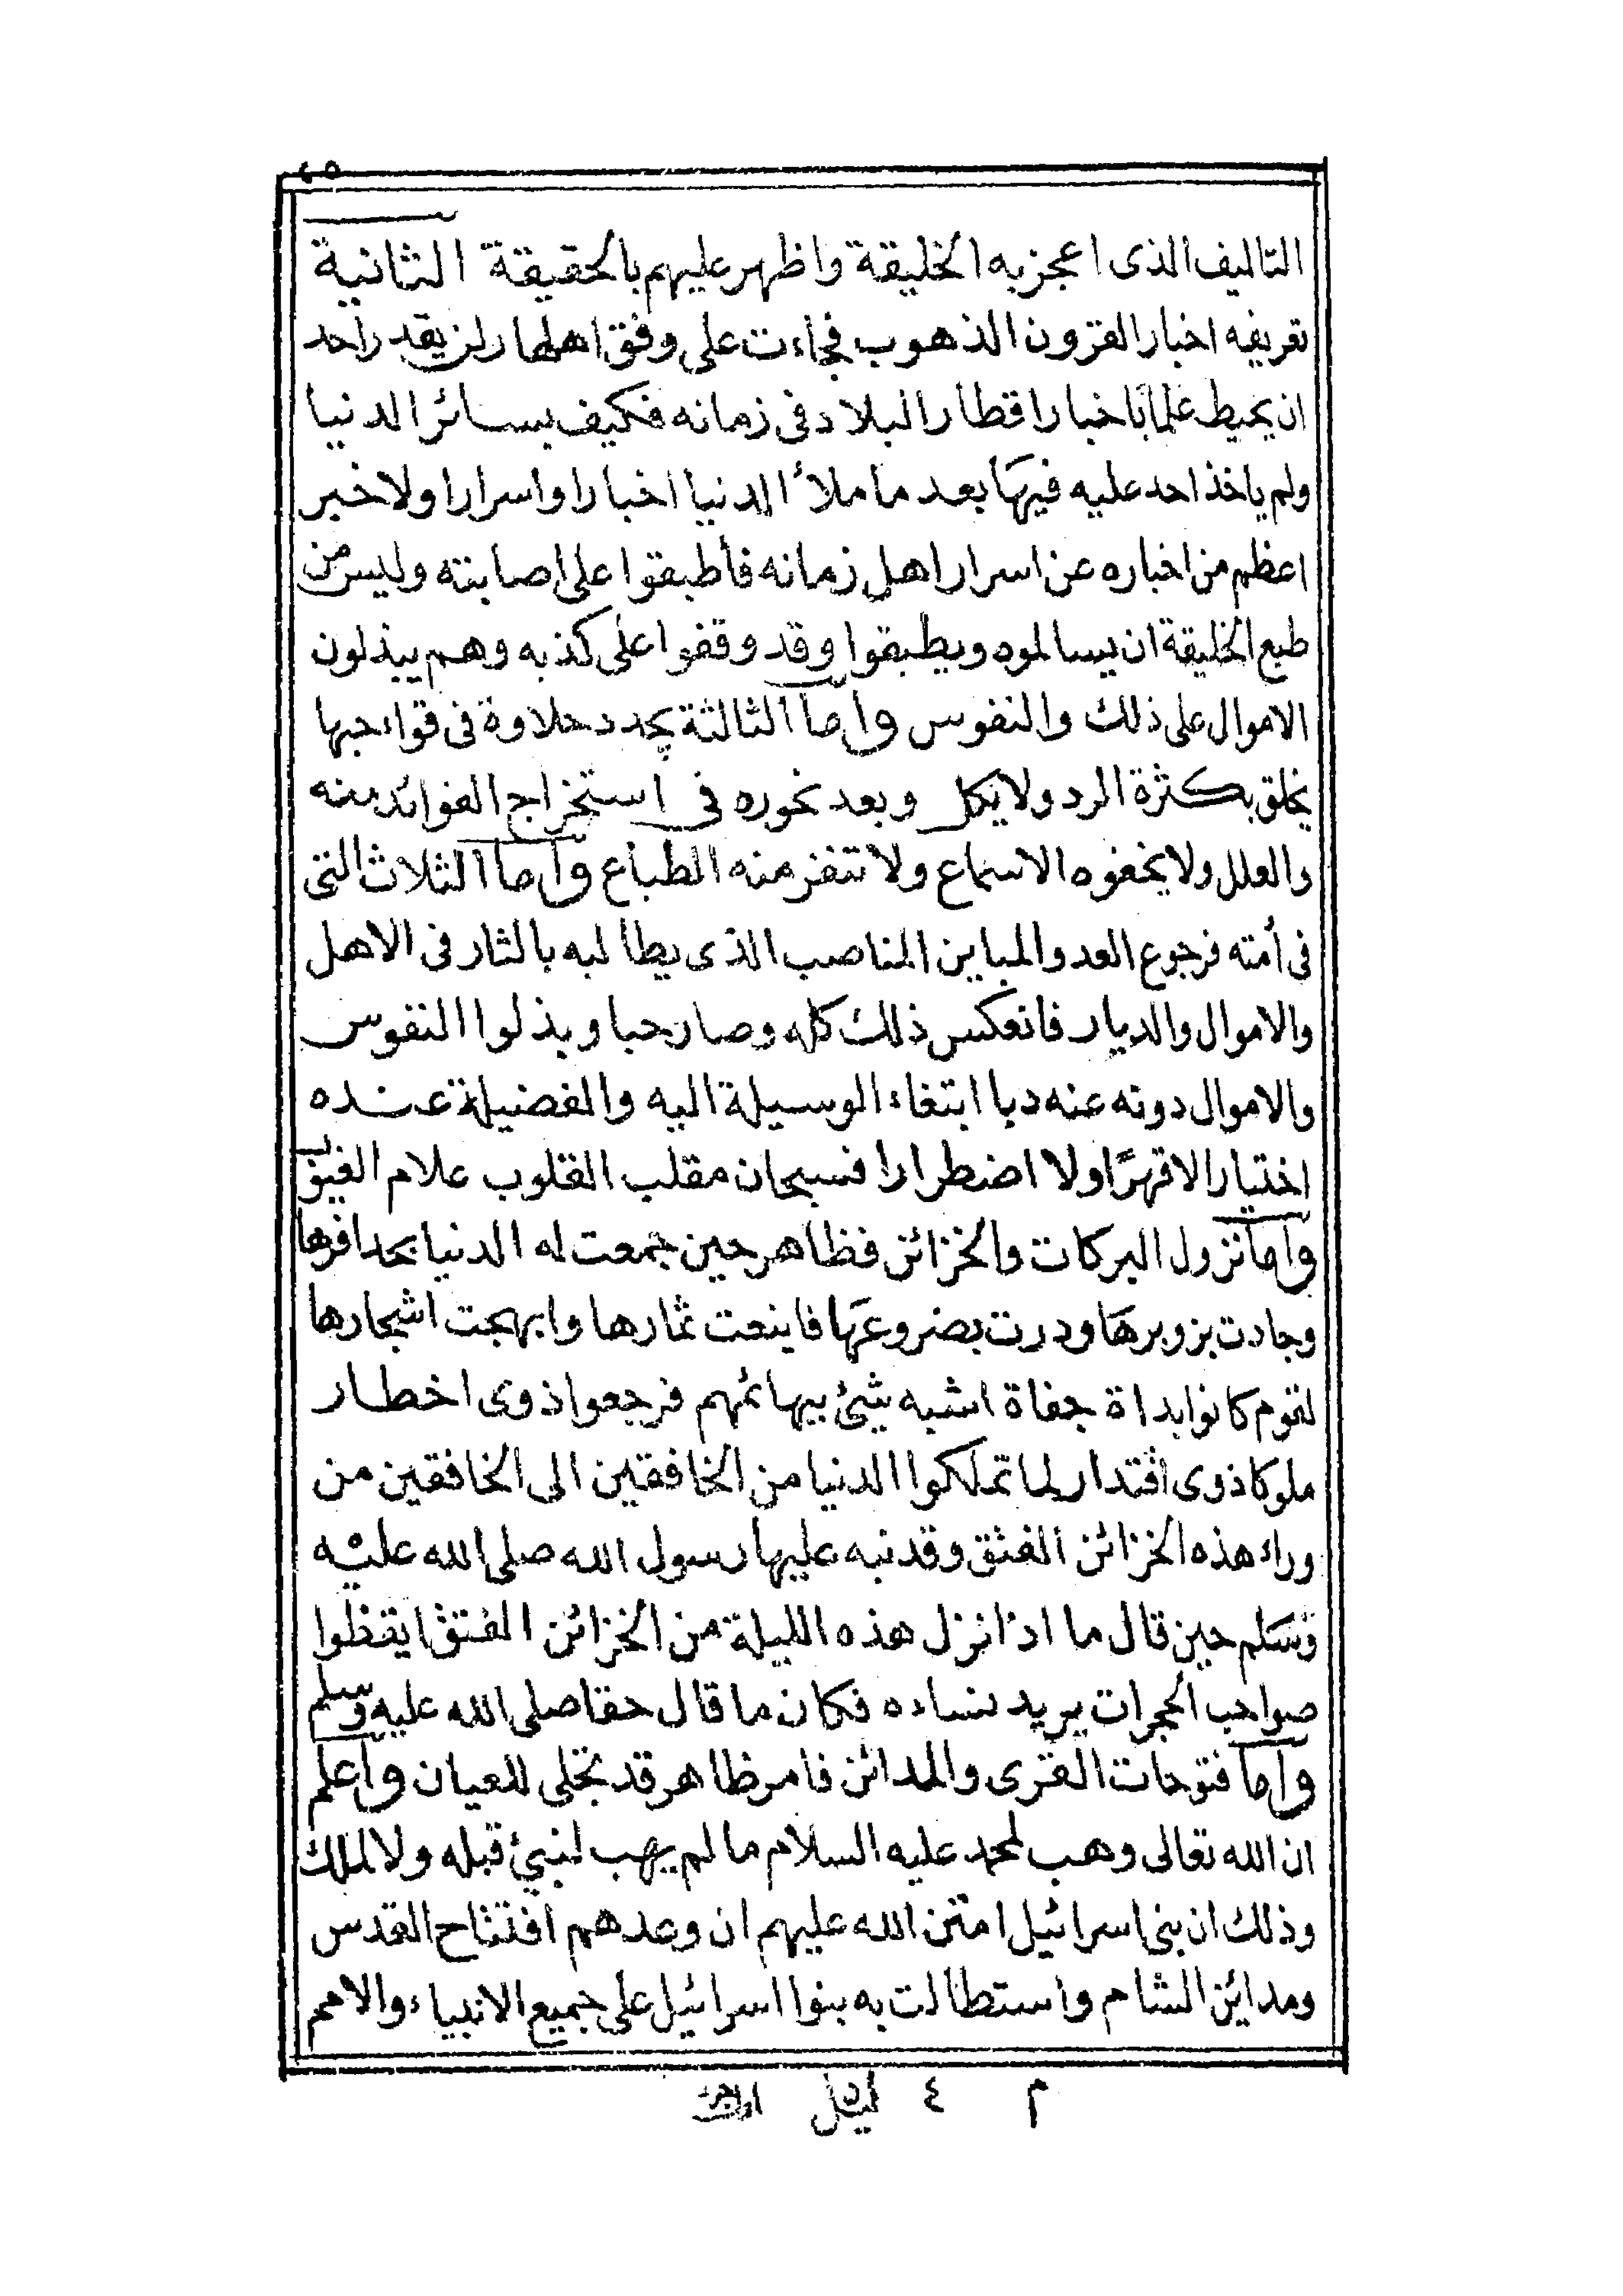 ٢٥
التاليف الذى اعجز به الخليقة واظهر عليهم بالحقيقة الثانية
تعريفه اخبار القرون الذهوب فجاءت على وفق اهلها ولن يقدر احد
ان يحيط علما باخبار اقطار البلاد فى زمانه فكيف بسائر الدنيا
ولم ياخذ احد عليه فيها بعد ما ملأ الدنيا اخبارا واسرارا ولا خبر
اعظم من اخباره عن اسرار اهل زمانه فأطبقوا على اصابته وليس من
طبع الخليقة ان يسالموه ويطبقوا وقد وقفوا على كذبه وهم يبذلون
الاموال على ذلك والنفوس وأما الثالثة يجدد حلاوة فى قواء حبها
يخلق بكثرة الرد ولا يكل وبعد غوره فى استخراج الفوائد منه
والعلل ولا يخفوه الاسماع ولا تنفر منه الطباع وأما الثلاث التى
فى أمته فرجوع العدو المباين المناصب الذى يطالبه بالثار فى الاهل
والاموال والديار فانعكس ذلك كله وصار حبا وبذلوا النفوس
والاموال دونه عنه دبا ابتغاء الوسيلة اليه والفضيلة عنده
اختيارا لا قهرًا ولا اضطرارا فسبحان مقلب القلوب علام الغيوب
وأما نزول البركات والخزائن فظاهر حين جمعت له الدنيا بحدافرها
وجادت بزوبرها ودرت بضروعها فاينعت ثمارها وابهجت اشجارها
لقوم كانوا بداة جفاة اشبه شئ ببهائمهم فرجعوا ذوى اخطار
ملوكا ذوى اقتدار لما تملكوا الدنيا من الخافقين الى الخافقين من
وراء هذه الخزائن الفتق وقد نبه عليها رسول الله صلى الله عليه
وسلم حين قال ما اذا نزل هذه الليلة من الخزائن الفتق ايقظوا
صواحب الحجرات يريد نساءه فكان ما قال حقا صلى الله عليه وسلم
وأما فتوحات القرى والمدائن فامر ظاهر قد تجلى للعيان واعلم
ان الله تعالى وهب لمحمد عليه السلام ما لم يهب لنبئ قبله ولا لملك
وذلك ان بنى اسرائيل امتن الله عليهم ان وعدهم افتتاح القدس
ومدائن الشام واستطالت به بنوا اسرائيل على جميع الانبياء والامم
م ٤ ليل